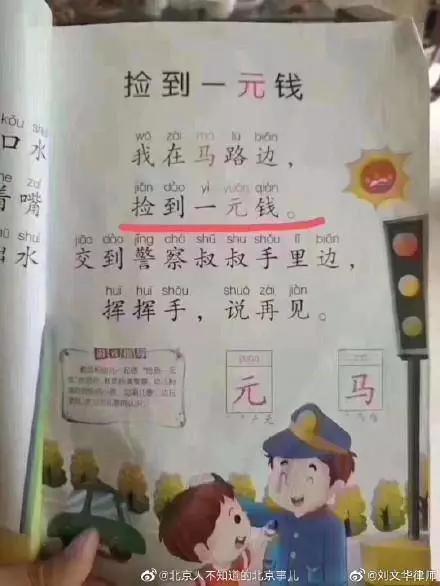 捡到一元钱
kǒu shuǐ
口水
着嘴
出水
wǒ zài mǎ lù biān
我在马路边，
jiǎn dào yì yuán qián
捡到一元钱。
jiāo dào jǐng chá shū shu shǒu lǐ biān
交到警察叔叔手里边，
huī huī shǒu shuō zài jiàn
挥挥手，说再见。
游戏指导
元
马
@北京人不知道的北京事儿
@刘文华律师